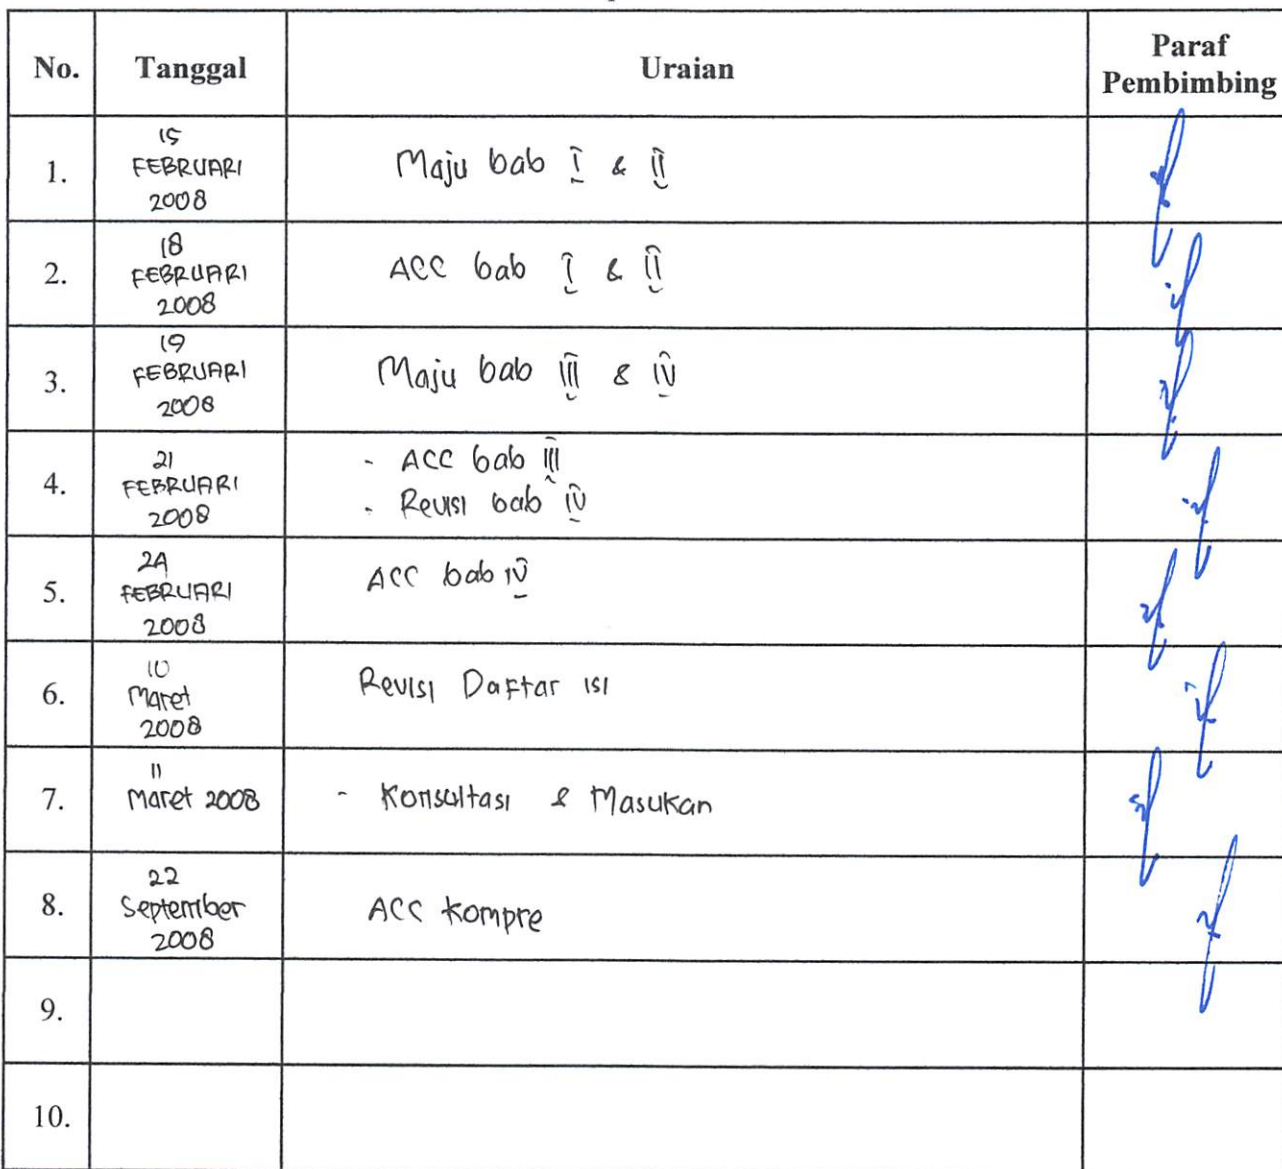 No. Tanggal Uraian Paraf
Pembimbing
1. 15
FEBRUARI
2008
Maju bab I & II
2. 18
FEBRUARI
2008
ACC bab I & II
3. 19
FEBRUARI
2008
Maju bab III & IV
4. 21
FEBRUARI
2008
- ACC bab III
- Revisi bab IV
5. 24
FEBRUARI
2008
ACC bab IV
6. 10
Maret
2008
Revisi Daftar isi
7. 11
Maret 2008
- Konsultasi & Masukan
8. 22
September
2008
ACC Kompre
9.
10.